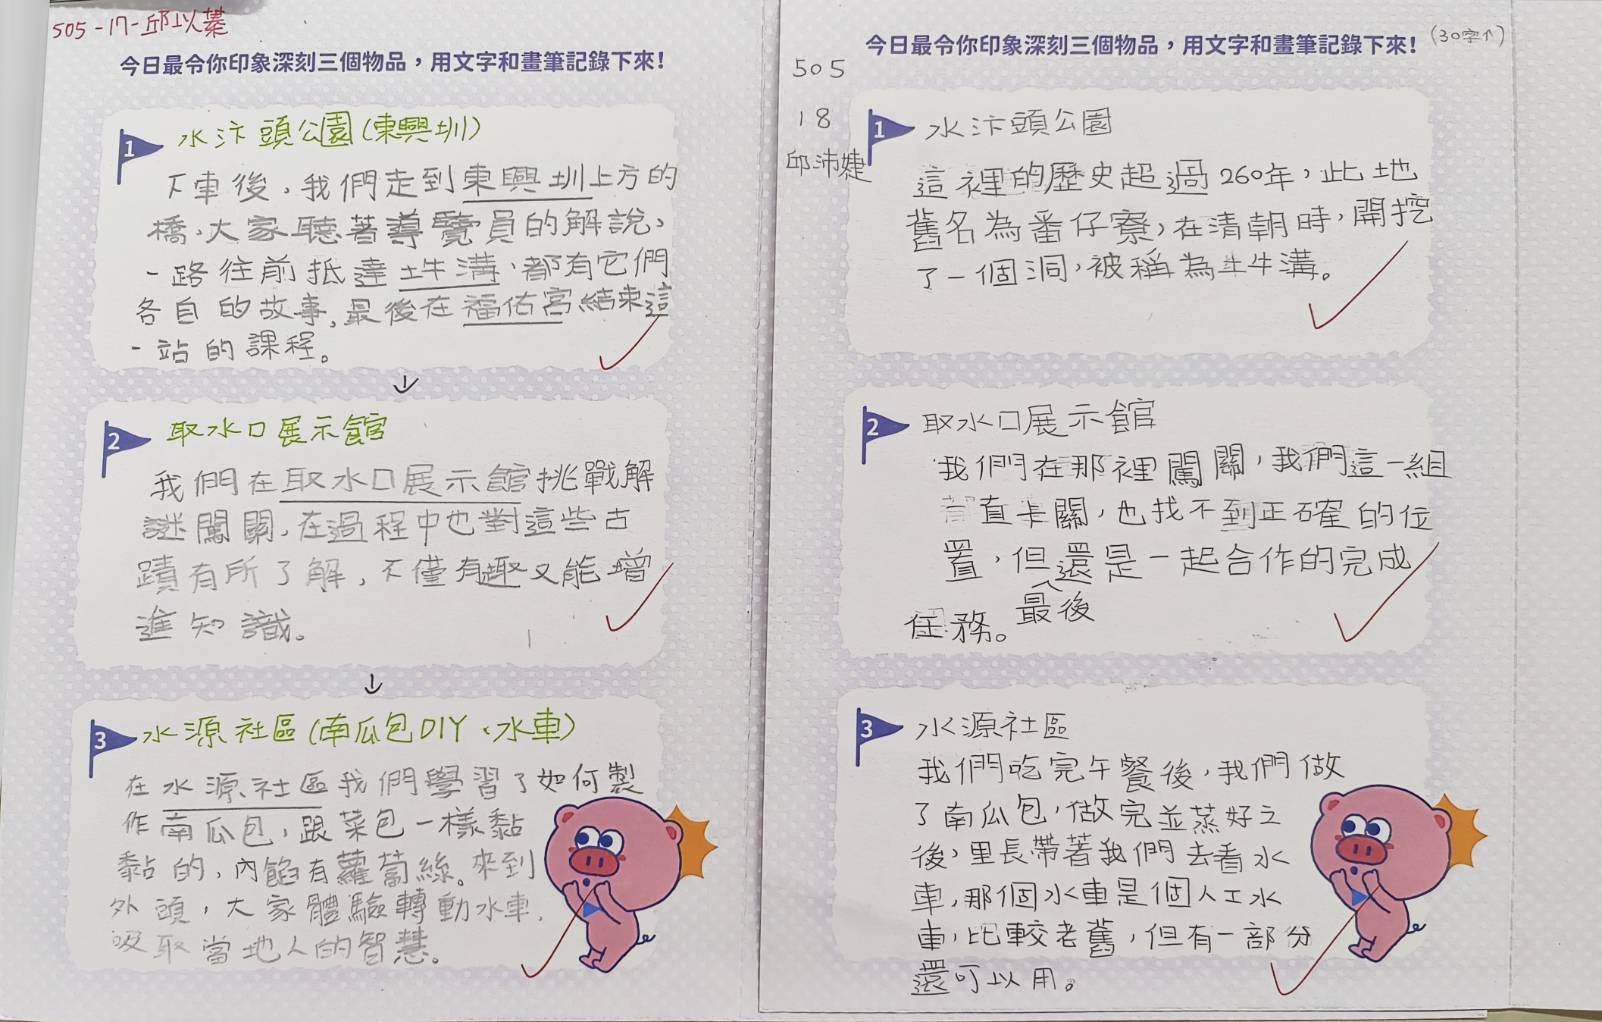 505-17-邱以蓁
今日最令你印象深刻三個物品，用文字和畫筆記錄下來！
1
水汴頭公園(東興圳)
下車後，我們走到東興圳上方的
橋，大家聽著導覽員的解說，
一路往前抵達土牛溝，都有它們
各自的故事，最後在福佑宮結束這
一站的課程。
↓
2
取水口展示館
我們在取水口展示館挑戰解
謎闖關，在過程中也對這些古
蹟有所了解，不僅有趣又能增
進知識。
↓
3
水源社區(南瓜包DIY、水車)
在水源社區我們學習了如何製
作南瓜包，跟菜包一樣黏
黏的，內餡有蘿蔔絲。來到
外頭，大家體驗轉動水車，
吸取當地人的智慧。
今日最令你印象深刻三個物品，用文字和畫筆記錄下來！
(30字↑)
505
18
邱沛婕
1
水汴頭公園
這裡的歷史超過260年，此地
舊名為番仔寮，在清朝時，開挖
了一個洞，被稱為牛溝。
2
取水口展示館
我們在那裡闖關，我們這一組
直卡關，也找不到正確的位
置，但還是一起合作的完成
最後
任務。
3
水源社區
我們吃完午餐後，我們做
了南瓜包，做完並蒸好之
後，里長帶著我們去看水
車，那個水車是個人工水
車，比較老舊，但有一部分
還可以用。